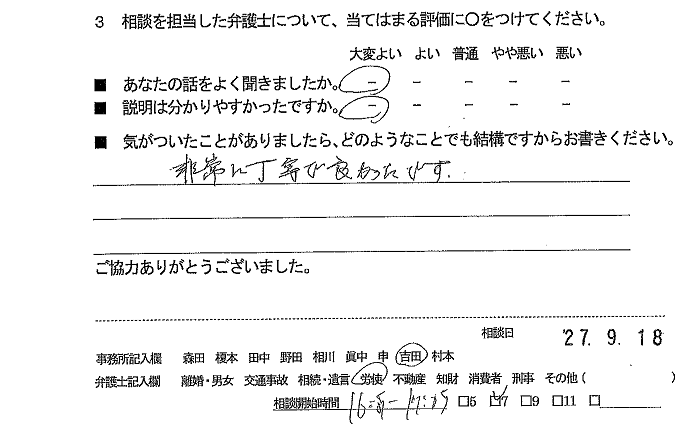 3 相談を担当した弁護士について、当てはまる評価に〇をつけてください。
大変よい よい 普通 やや悪い 悪い
■ あなたの話をよく聞きましたか。 － － － － －
■ 説明は分かりやすかったですか。 － － － － －
■ 気がついたことがありましたら、どのようなことでも結構ですからお書きください。
非常に丁寧で良かったです。
ご協力ありがとうございました。
相談日 27. 9. 18
事務所記入欄 森田 榎本 田中 野田 相川 眞中 申 吉田 村本
弁護士記入欄 離婚・男女 交通事故 相続・遺言 労使 不動産 知財 消費者 刑事 その他 ( )
相談開始時間 □5 □7 □9 □11 □